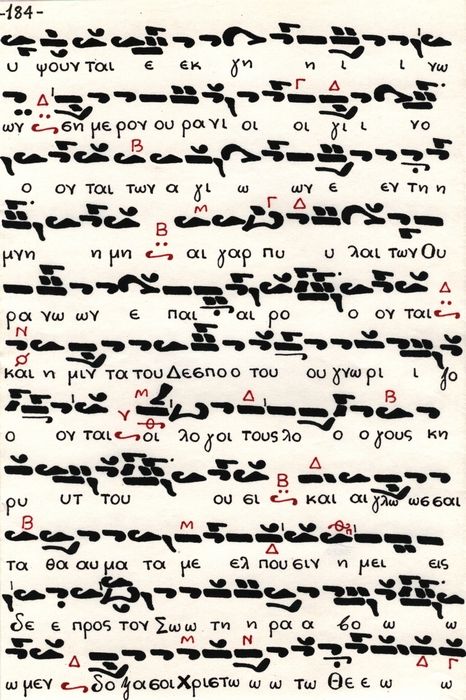 -184-
υ ψουν ται ε εκ γη η ι ι νω
ων Δ ση με ρον ου ρα νι οι οι γι ι νο
ο ον ται των α γι ω ων ε εν τη η
μνη η μη Β αι γαρ πυ υ λαι των Ου
ρα νω ων ε παι αι ρο ο ον ται Δ
και η μιν τα του Δεσπο ο του ου γνω ρι ι ζο
ο ον ται γ οι λο γοι τους λο ο ο γους κη
ρυ υτ του ου σι Β και αι γλω ωσσαι
τα θα αυ μα τα με ελ που σιν η μει εις
δε ε προς τον Σω ω τη η ρα α βο ω ω
ω μεν Δ δο ξα σοι Χριστω ω ω τω Θε ε ω ω